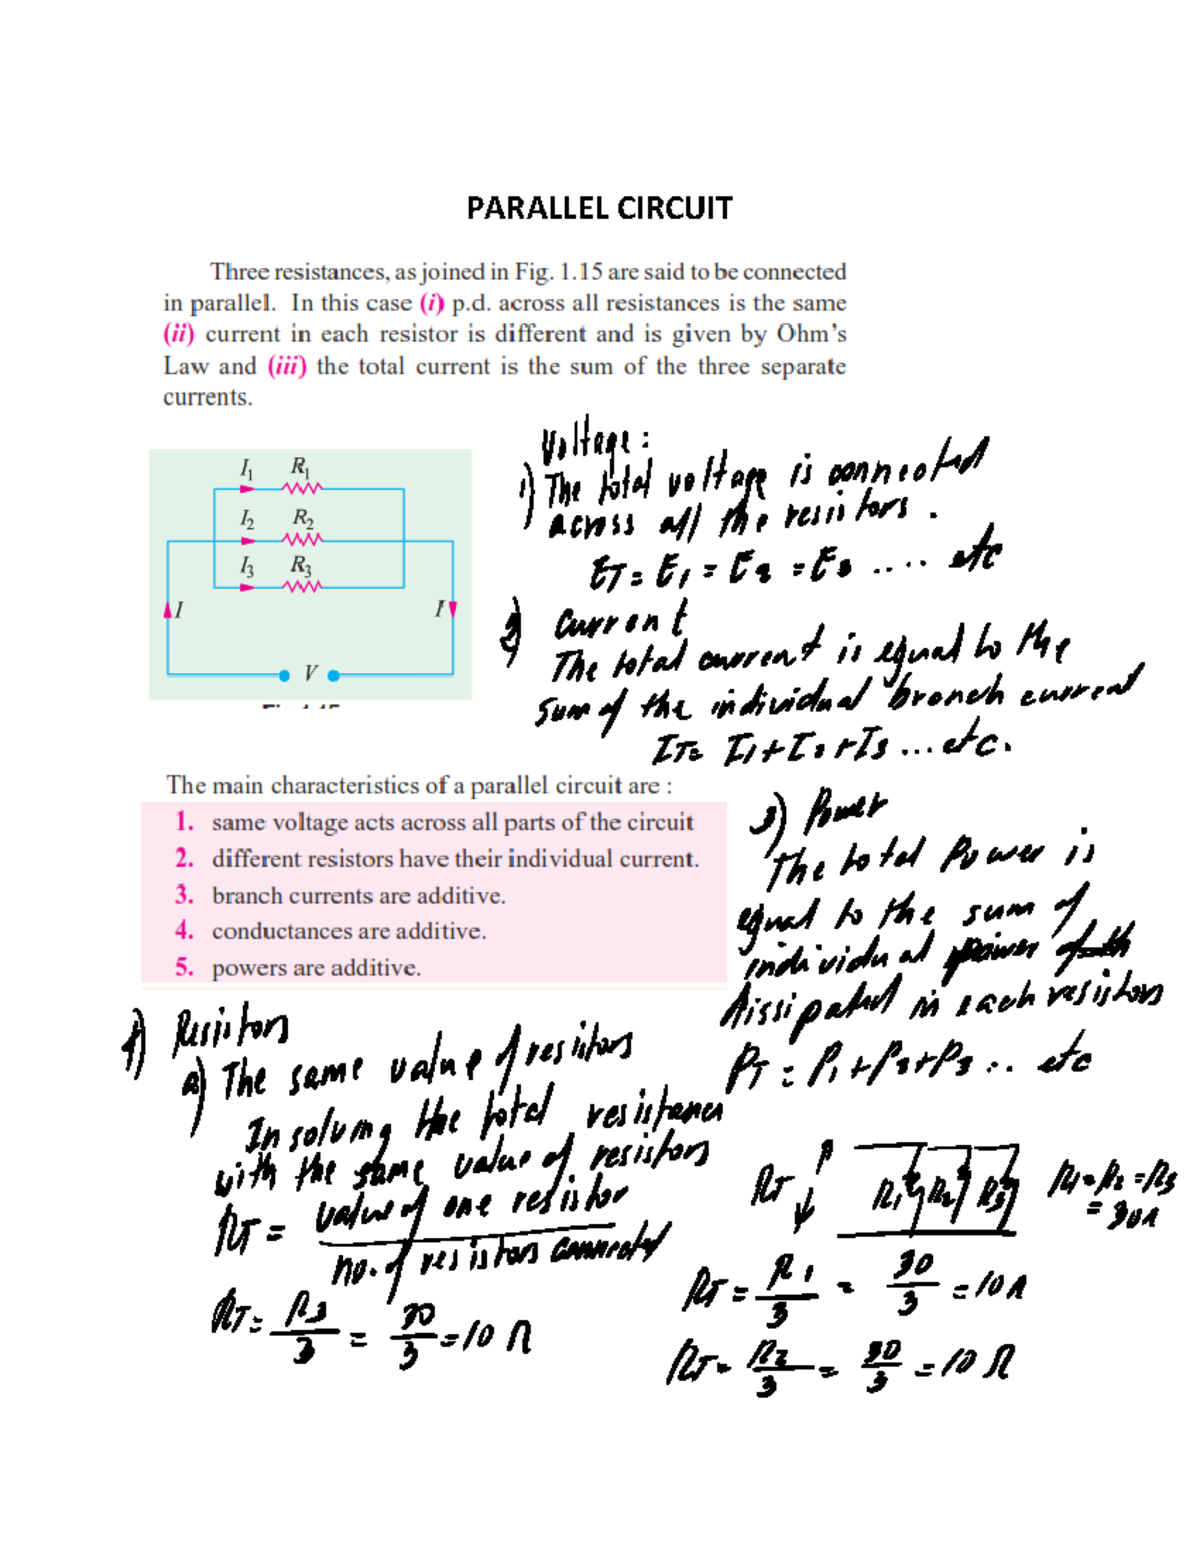 PARALLEL CIRCUIT
Three resistances, as joined in Fig. 1.15 are said to be connected
in parallel. In this case (i) p.d. across all resistances is the same
(ii) current in each resistor is different and is given by Ohm's
Law and (iii) the total current is the sum of the three separate
currents.
I1 R1
I2 R2
I3 R3
I I
V
Voltage:
1) The total voltage is connected
across all the resistors.
ET = E1 = E2 = E3 .... etc
2) Current
The total current is equal to the
sum of the individual branch current
IT = I1 + I2 + I3 ... etc.
The main characteristics of a parallel circuit are :
1. same voltage acts across all parts of the circuit
2. different resistors have their individual current.
3. branch currents are additive.
4. conductances are additive.
5. powers are additive.
3) Power
The total Power is
equal to the sum of
individual power
dissipated in each resistors
PT = P1 + P2 + P3 ... etc
4) Resistors
a) The same value of resistors
In solving the total resistance
with the same value of resistors
RT = value of one resistor
no. of resistors connected
RT = R3/3 = 30/3 = 10 Ω
RT R1 R2 R3 R1 = R2 = R3
= 30Ω
RT = R1/3 = 30/3 = 10Ω
RT = R2/3 = 30/3 = 10 Ω